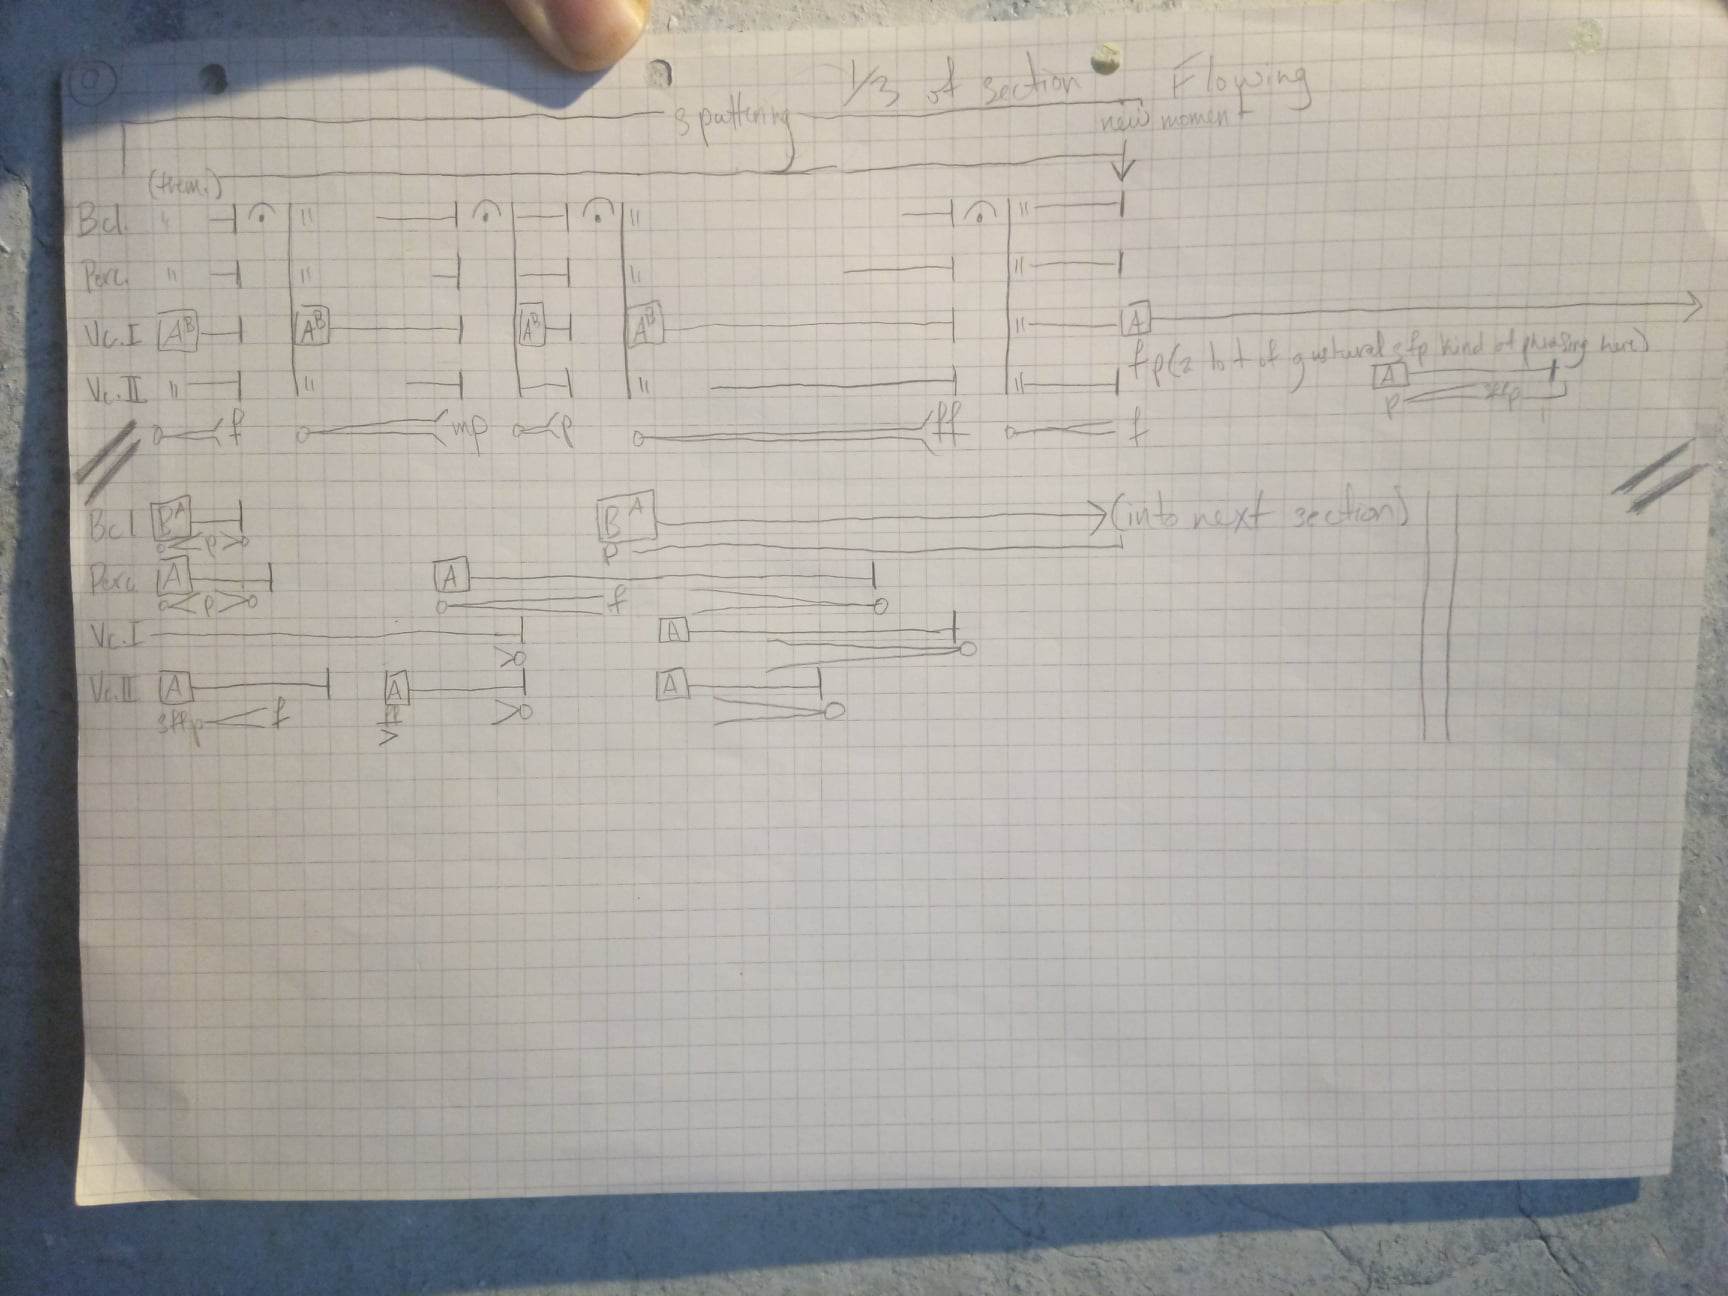 1/3 of section Flowing
spattering new moment
(trem.)
Bcl. " "  " "
Perc. " " " "
Vc.I A^B A^B A^B A^B " A
fp (a lot of gestural sfp kind of phrasing here)
Vc.II " " " " A
f mp p ff f p sffp
Bcl B^A B^A (into next section)
p p
Perc. A A
p f
Vc.I A
Vc.II A A A
sffp f ff